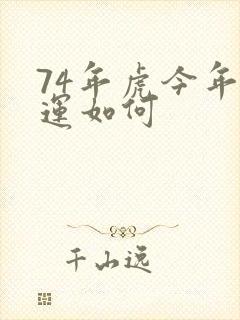 74年虎今年
運如何
千山远